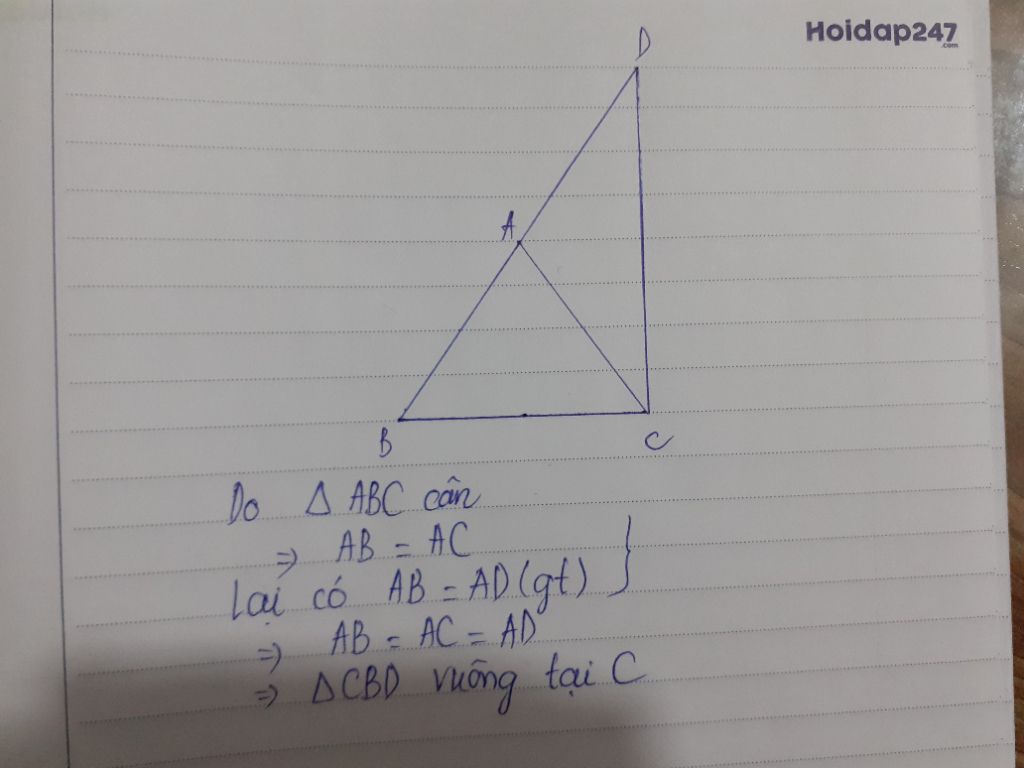 Hoidap247
.com
D
A
B
C
Do Δ ABC cân
=> AB = AC
Lại có AB = AD (gt)
=> AB = AC = AD
=> ΔCBD vuông tại C